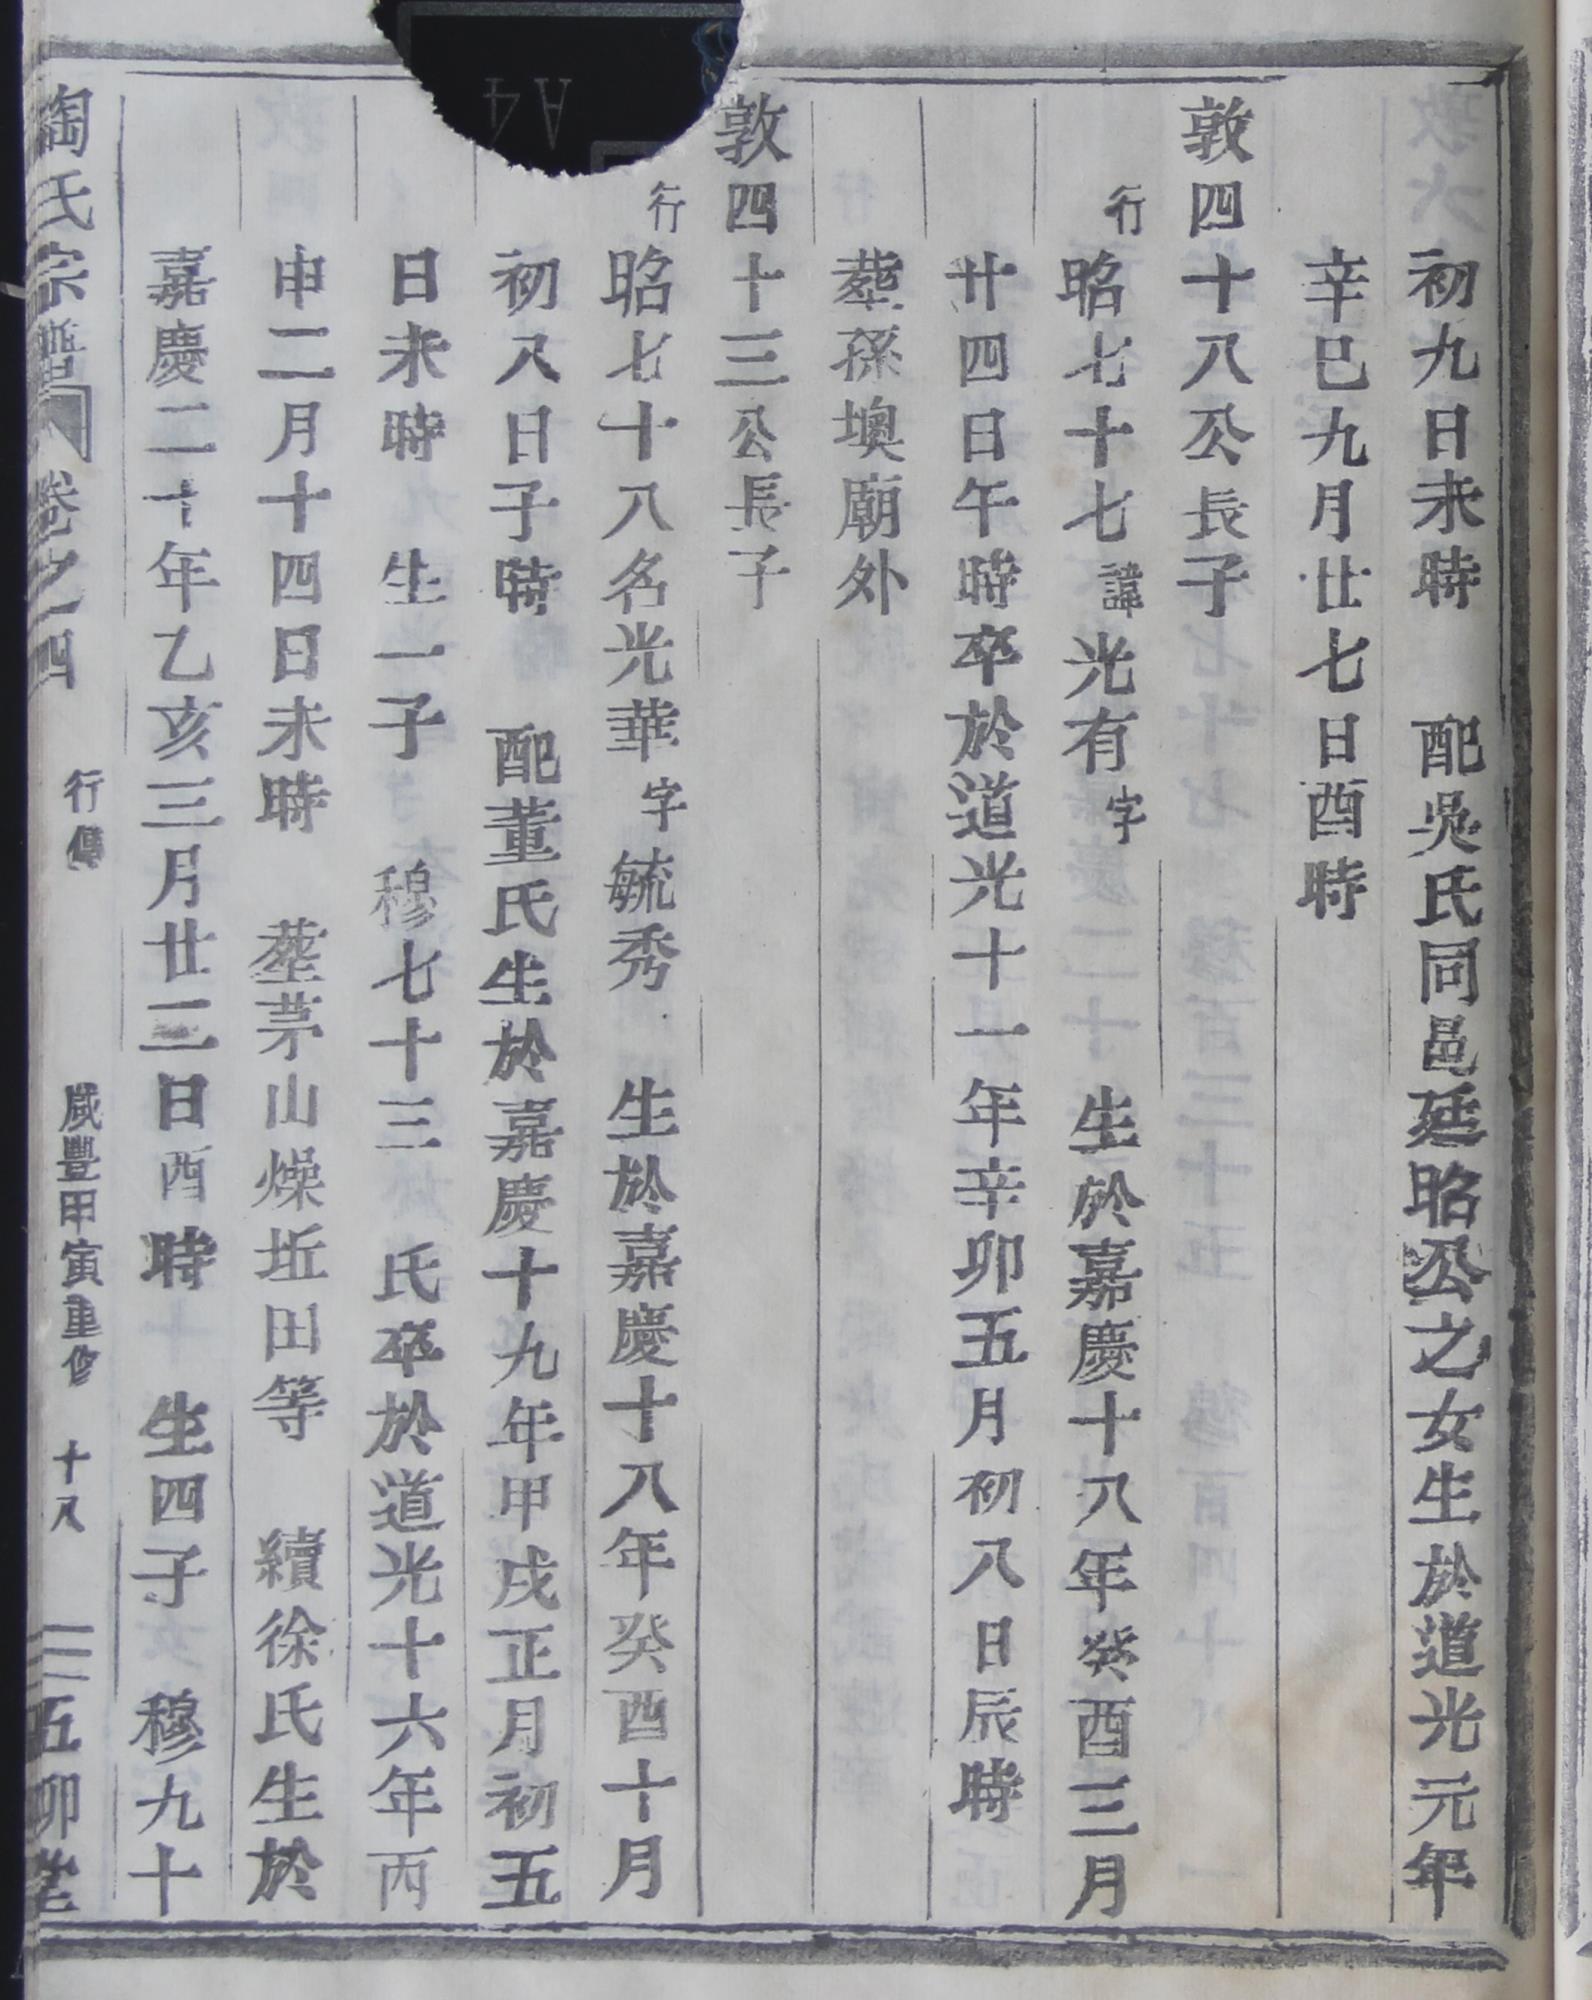 初九日未時　配吳氏同邑廷昭公之女生於道光元年
辛巳九月廿七日酉時
敦四十八公長子
行昭七十七諱光有字　生於嘉慶十八年癸酉三月
廿四日午時卒於道光十一年辛卯五月初八日辰時
葬孫墺廟外
敦四十三公長子
行昭七十八名光華字毓秀　生於嘉慶十八年癸酉十月
初八日子時　配董氏生於嘉慶十九年甲戌正月初五
日未時　生一子　穆七十三　氏卒於道光十六年丙
申二月十四日未時　塟茅山燥坵田等　續徐氏生於
嘉慶二十年乙亥三月廿三日酉時　生四子　穆九十
陶氏宗譜　卷之四　行傳　咸豐甲寅重修　十八　五柳堂
A4